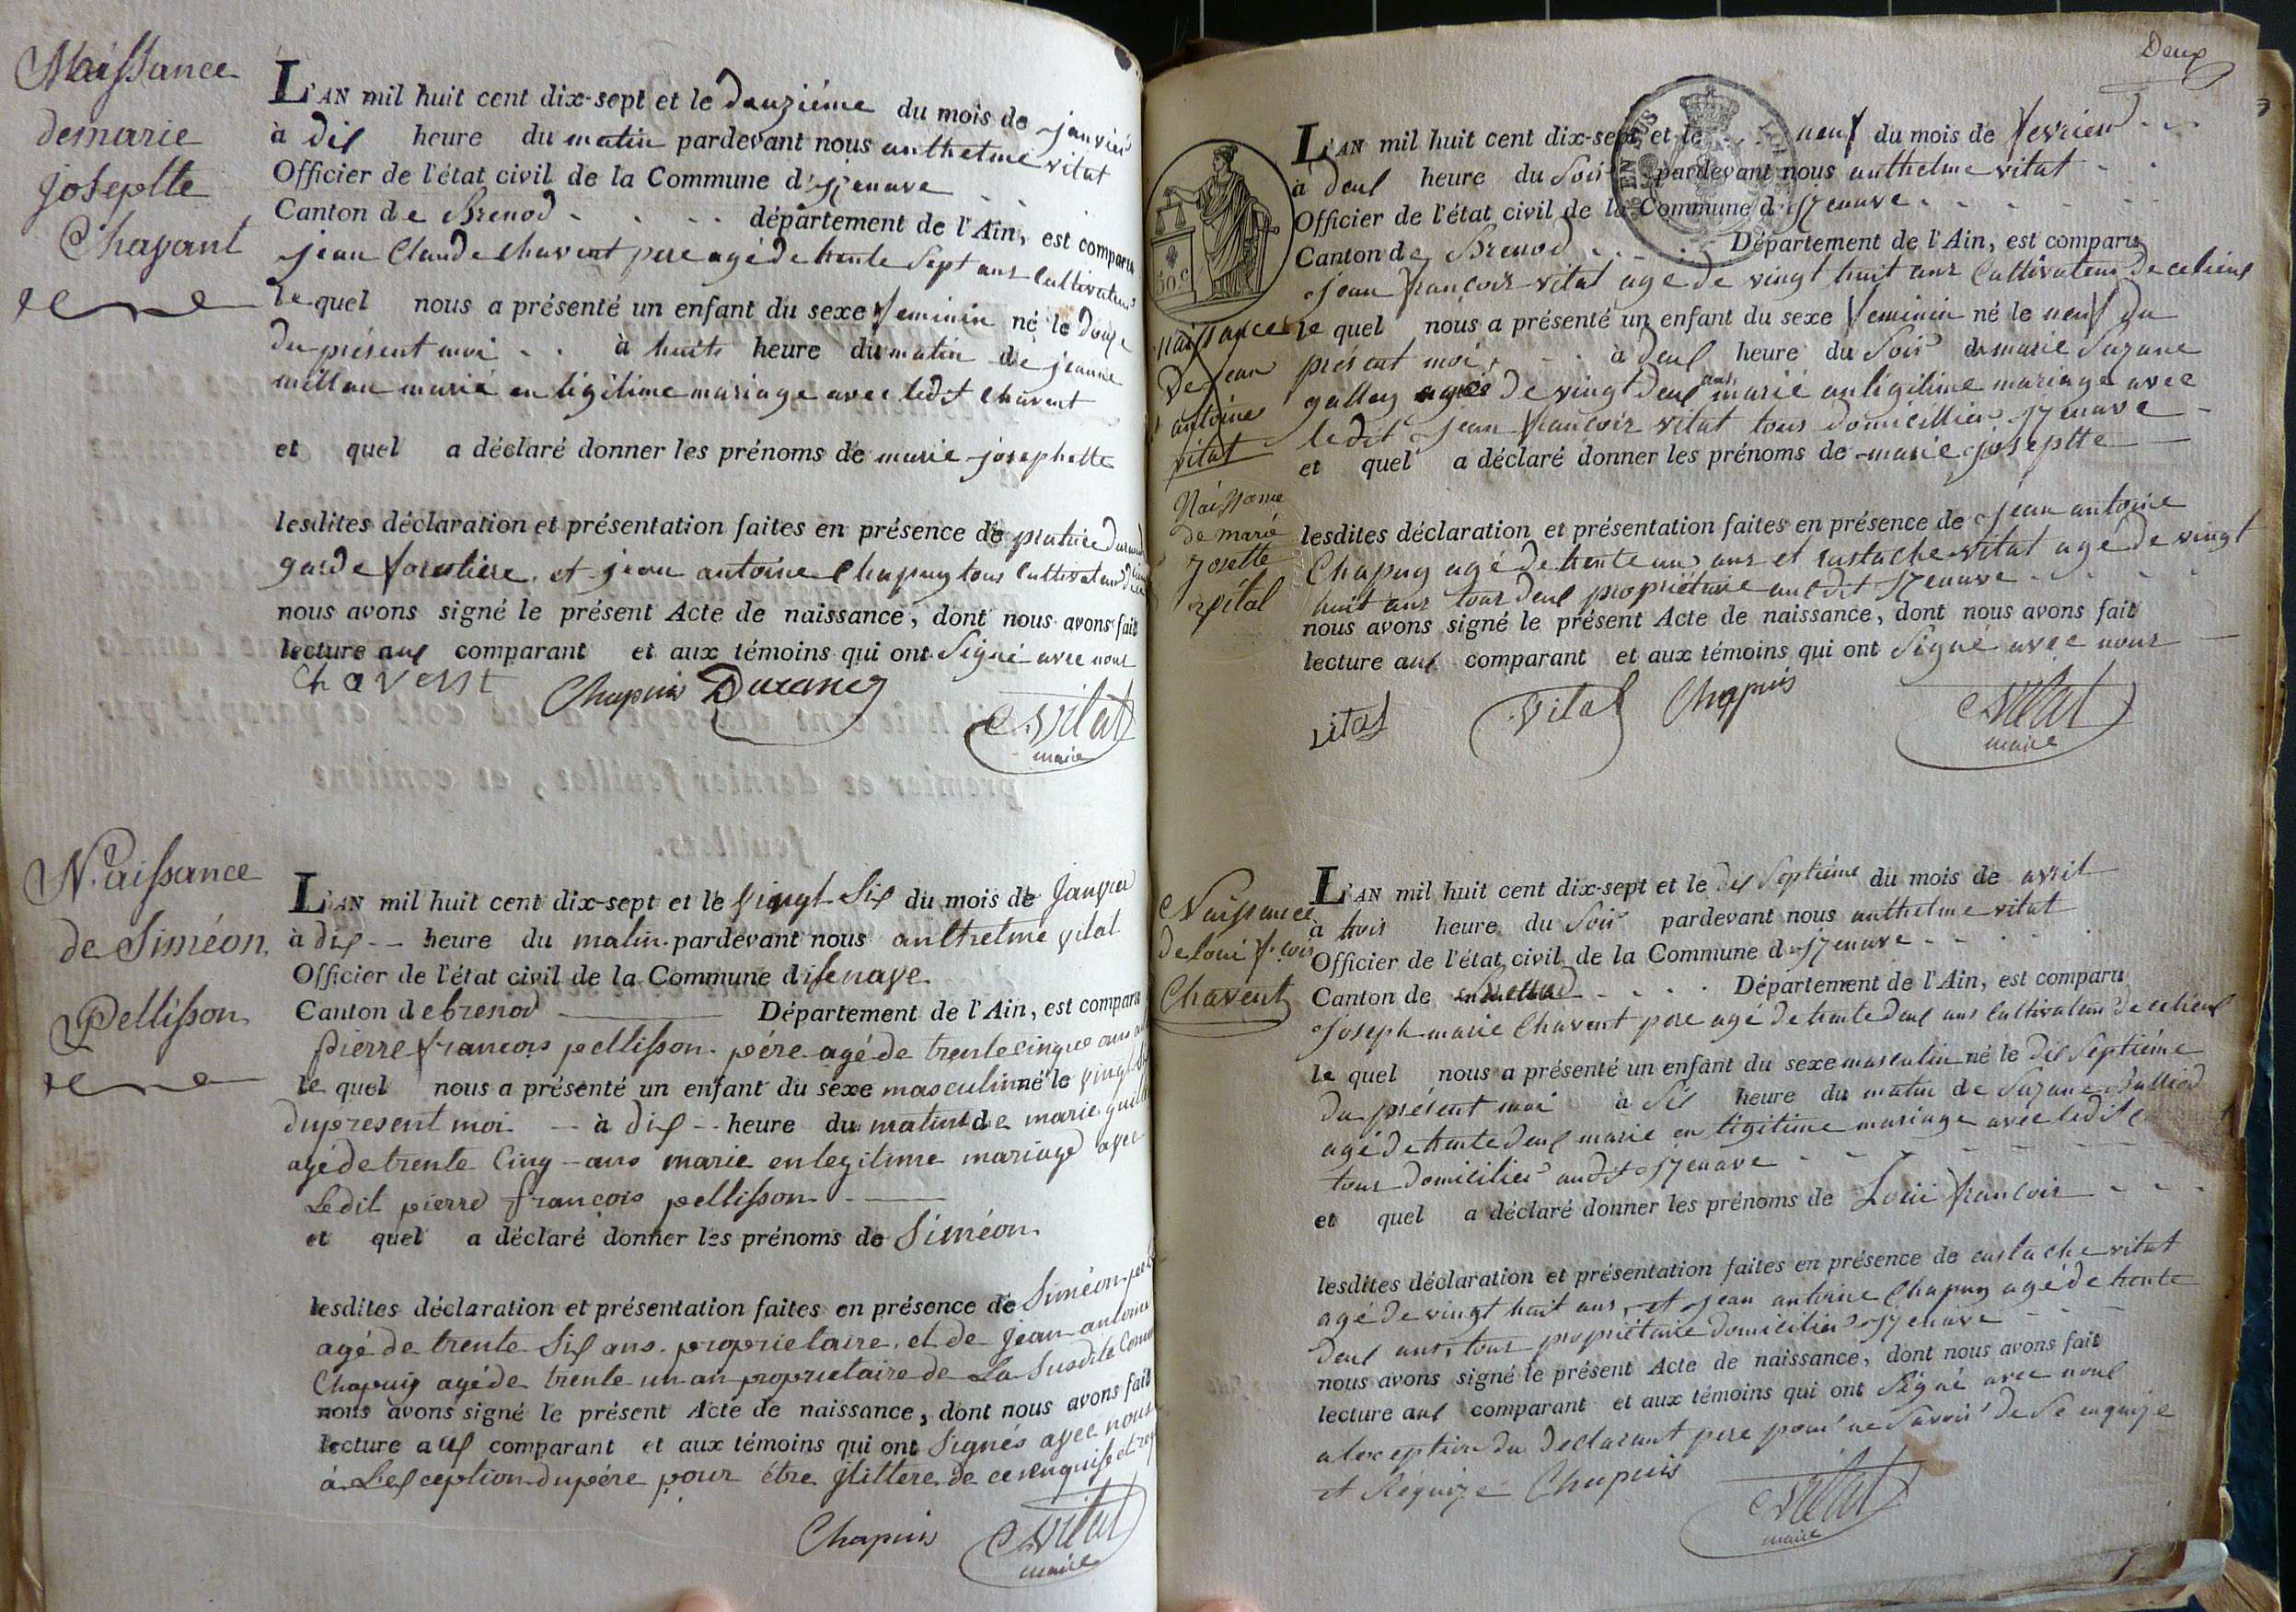 Naissance
de marie
joseptte
Chavant
L'AN mil huit cent dix-sept et le douziéme du mois de janvier
à dix heure du matin pardevant nous anthelme vitat
Officier de l'état civil de la Commune d'izenave
Canton de Brenod département de l'Ain, est comparu
jean Claude Chavent pere agé de trente Sept ans Cultivateur
le quel nous a présenté un enfant du sexe feminin né le douze
du présent moi à huits heure du matin de jeanne
millau marié en légitime mariage avec ledit Chavent
et quel a déclaré donner les prénoms de marie josephette
lesdites déclaration et présentation faites en présence de
garde forestiere, et jean antoine Chapuy tous Cultivateurs
nous avons signé le présent Acte de naissance, dont nous avons fait
lecture aux comparant et aux témoins qui ont Signé avec nous
Chavent Chapuis Durand
vitat
maire
Naissance
de Siméon
Pellisson
L'AN mil huit cent dix-sept et le vingt Six du mois de Janvier
à dix heure du matin pardevant nous anthelme vitat
Officier de l'état civil de la Commune d isenave
Canton de brenod Département de l'Ain, est comparu
pierre francois pellisson père agé de trente cinque ans
le quel nous a présenté un enfant du sexe masculin né le vingt
du present moi à dix heure du matin de marie
agé de trente Cinq ans marie en legitime mariage avec
Ledit pierre francois pellisson
et quel a déclaré donner les prénoms de Siméon
lesdites déclaration et présentation faites en présence de Siméon
agé de trente Six ans proprietaire et de jean antoine
Chapuis agé de trente un an proprietaire de La Susdite
nous avons signé le présent Acte de naissance, dont nous avons fait
lecture aux comparant et aux témoins qui ont Signés avec nous
à L'exception du pére pour étre jlittere de ce enquise et
Chapuis vitat
maire
Deux
50.c
naissance
de jean
antoine
vitat
Naissance
de marie
Josette
vital
L'AN mil huit cent dix-sept et le neuf du mois de fevrier
à deux heure du Soir pardevant nous anthelme vitat
Officier de l'état civil de la Commune d izenave
Canton de Brenod Département de l'Ain, est comparu
jean francois vitat age de vingt huit ans Cultivateur de ce lieux
le quel nous a présenté un enfant du sexe feminin né le neuf du
present moi à deux heure du Soir de marie Suzane
galley agée de vingt deux ans marié en légitime mariage avec
ledit jean francois vitat tous domicillier izenave
et quel a déclaré donner les prénoms de marie joseptte
lesdites déclaration et présentation faites en présence de jean antoine
Chapuy agé de trente un ans et eustache vitat agé de vingt
huit ans tous deux propriétaire audit izenave
nous avons signé le présent Acte de naissance, dont nous avons fait
lecture aux comparant et aux témoins qui ont Signé avec nous
vital vital Chapuis vitat
maire
Naissance
de loui f.cois
Chavent
L'AN mil huit cent dix-sept et le dix Septiéme du mois de avril
à trois heure du Soir pardevant nous anthelme vitat
Officier de l'état civil de la Commune d izenave
Canton de Département de l'Ain, est comparu
joseph marie Chavent pere agé de trente deux ans Cultivateur de ce lieux
le quel nous a présenté un enfant du sexe masculin né le dix Septiéme
du présent moi à Six heure du matin de Suzane
agé de trente deux marie en légitime mariage avec ledit
tous domicilier audit izenave
et quel a déclaré donner les prénoms de Loui francois
lesdites déclaration et présentation faites en présence de eustache vitat
agé de vingt huit ans, et jean antoine Chapuy agé de trente
deux ans, tous propriétaire domicilier izenave
nous avons signé le présent Acte de naissance, dont nous avons fait
lecture aux comparant et aux témoins qui ont Signé avec nous
a lexception du declarant pere pour ne Savoir de Se enquize
et Réquizé Chapuis
vitat
maire